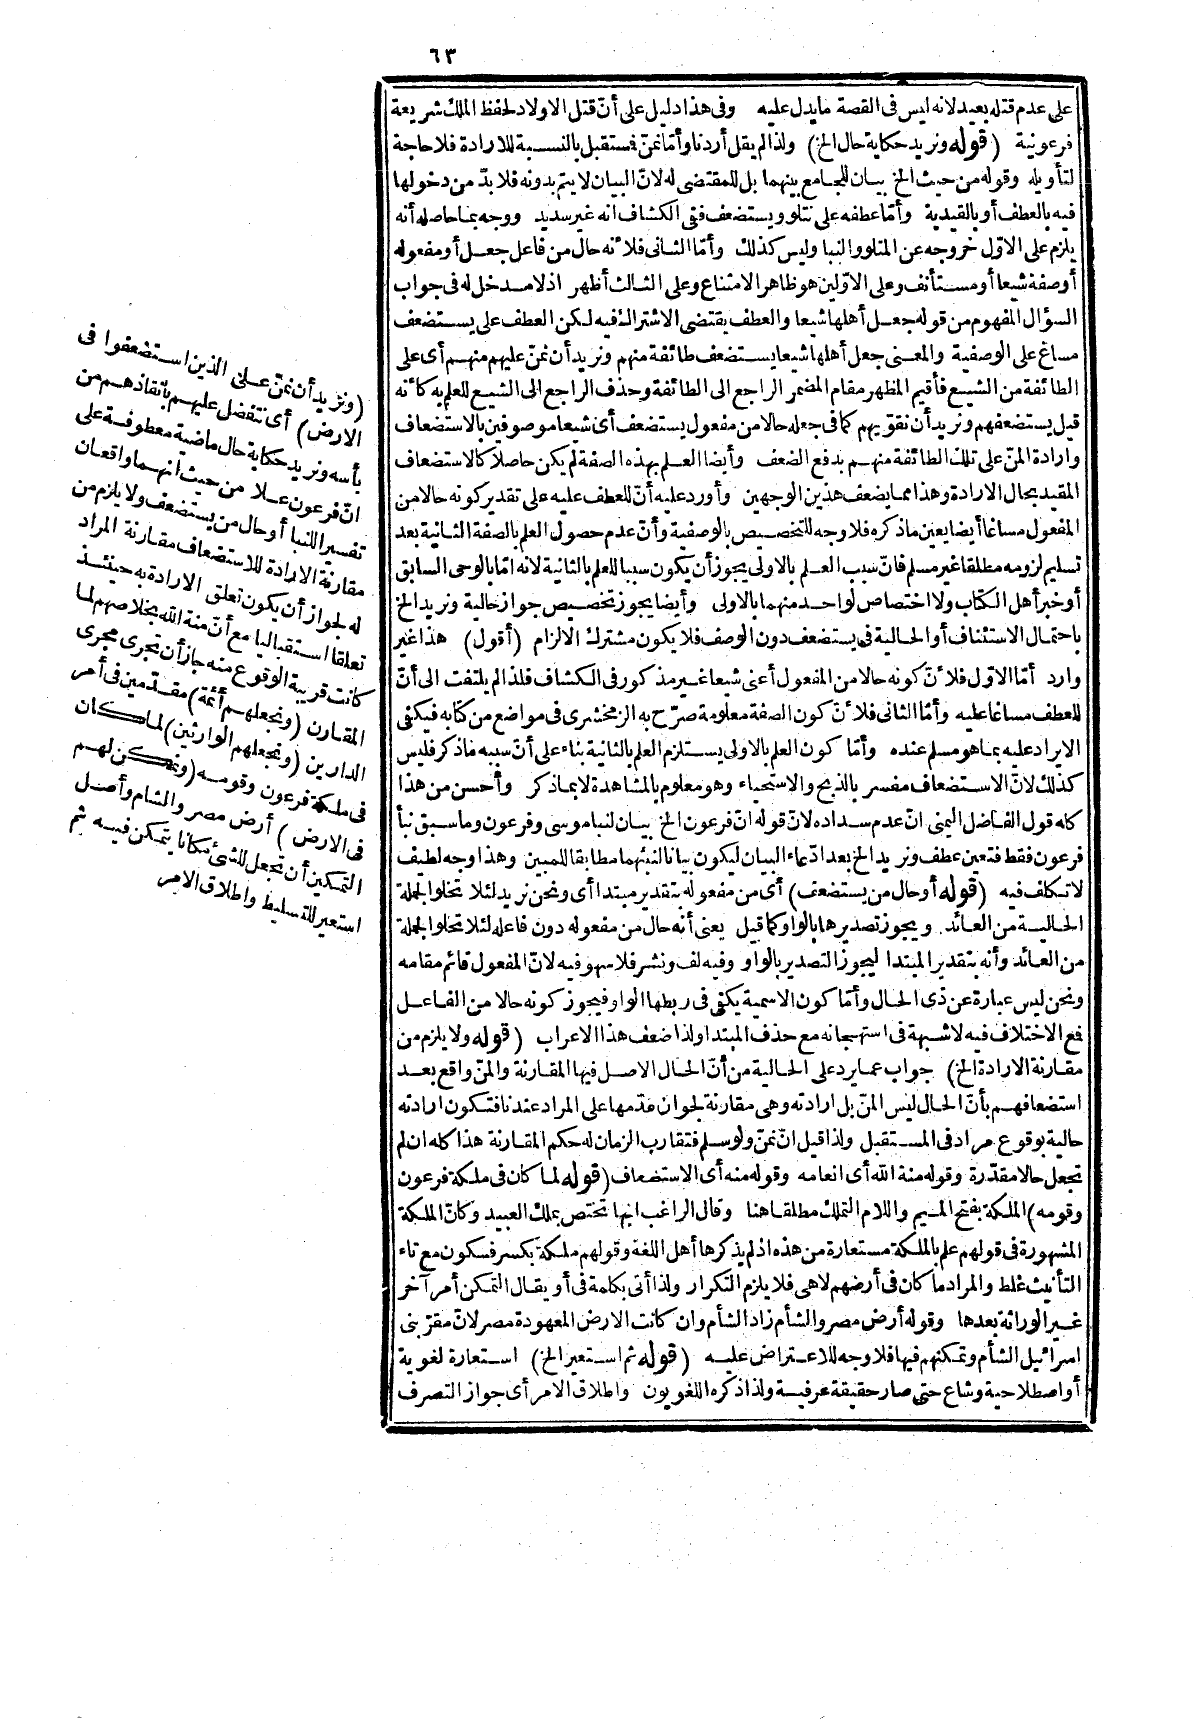 ٦٣
على عدم قتله بعيد لانه ليس فى القصة مايدل عليه وفى هذا دليل على أنّ قتل الاولاد لحفظ الملك شريعة
فرعونية (قوله ونريد حكاية حال الخ) ولذا لم يقل أردنا وأمّا نمنّ فمستقبل بالنسبة للارادة فلا حاجة
لتأويله وقوله من حيث الخ بيان للجامع بينهما بل للمقتضى له لانّ البيان لا يتم بدونه فلا بدّ من دخولها
فيه بالعطف أو بالقيدية وأمّا عطفه على نتلو ويستضعف ففى الكشاف انه غير سديد ووجه بما حاصله أنه
يلزم على الاوّل خروجه عن المتلو والنبا وليس كذلك وأمّا الثانى فلانه حال من فاعل جعل أو مفعوله
أوصفة شيعا أو مستأنف وعلى الاوّلين هو ظاهر الامتناع وعلى الثالث أظهر اذ لا مدخل له فى جواب
السؤال المفهوم من قوله جعل أهلها شيعا والعطف يقتضى الاشتراك فيه لكن العطف على يستضعف
مساغ على الوصفية والمعنى جعل أهلها شيعا يستضعف طائفة منهم ونريد أن نمنّ عليهم منهم أى على
الطائفة من الشيع فأقيم المظهر مقام المضمر الراجع الى الطائفة وحذف الراجع الى الشيع للعلم به كأنه
قيل يستضعفهم ونريد أن نقويهم كما فى جعله حالا من مفعول يستضعف أى شيعا موصوفين بالاستضعاف
وارادة المنّ على تلك الطائفة منهم بدفع الضعف وأيضا العلم بهذه الصفة لم يكن حاصلا كالاستضعاف
المقيد بحال الارادة وهذا مما يضعف هذين الوجهين وأورد عليه أنّ للعطف عليه على تقدير كونه حالا من
المفعول مساغا أيضا بعين ماذكره فلا وجه للتخصيص بالوصفية وأنّ عدم حصول العلم بالصفة الثانية بعد
تسليم لزومه مطلقا غير مسلم فانّ سبب العلم بالاولى يجوز أن يكون سببا للعلم بالثانية لانه امّا بالوحى السابق
أو خبر أهل الكتاب ولا اختصاص لواحد منهما بالاولى وأيضا يجوز تخصيص جواز حالية ونريد الخ
باحتمال الاستئناف أو الحالية فى يستضعف دون الوصف فلا يكون مشترك الالزام (أقول) هذا غير
وارد أمّا الاوّل فلانّ كونه حالا من المفعول أعنى شيعا غير مذكور فى الكشاف فلذا لم يلتفت الى أنّ
للعطف مساغا عليه وأمّا الثانى فلانّ كون الصفة معلومة صرّح به الزمخشرى فى مواضع من كتابه فيكفى
الايراد عليه بما هو مسلم عنده وأمّا كون العلم بالاولى يستلزم العلم بالثانية بناء على أنّ سببه ماذكر فليس
كذلك لانّ الاستضعاف مفسر بالذبح والاستحياء وهو معلوم بالمشاهدة لا بما ذكر وأحسن من هذا
كله قول الفاضل اليمنى انّ عدم سداده لانّ قوله انّ فرعون الخ بيان لنبا موسى وفرعون وما سبق نبأ
فرعون فقط فتعين عطف ونريد الخ بعد ادّعاء البيان ليكون بيانا لنبئهما مطابقا للمبين وهذا وجه لطيف
لا تكلف فيه (قوله أو حال من يستضعف) أى من مفعوله بتقدير مبتدا أى ونحن نريد لئلا تخلو الجملة
الحالية من العائد ويجوز تصديرها بالواو كما قيل يعنى أنه حال من مفعوله دون فاعله لئلا تخلو الجملة
من العائد وأنه بتقدير المبتدا ليجوز التصدير بالواو وفيه لف ونشر فلا سهو فيه لانّ المفعول قائم مقامه
ونحن ليس عبارة عن ذى الحال وأمّا كون الاسمية يكفى فى ربطها الواو فيجوز كونه حالا من الفاعل
فع الاختلاف فيه لا شبهة فى استهجانه مع حذف المبتدا ولذا ضعف هذا الاعراب (قوله ولا يلزم من
مقارنة الارادة الخ) جواب عما يرد على الحالية من أنّ الحال الاصل فيها المقارنة والمنّ واقع بعد
استضعافهم بأنّ الحال ليس المنّ بل ارادته وهى مقارنة لجواز تقدّمها على المراد عندنا فتكون ارادته
حالية بوقوع مراد فى المستقبل ولذا قيل انّ نمنّ ولو سلم فتقارب الزمان له حكم المقارنة هذا كله ان لم
تجعل حالا مقدّرة وقوله منة الله أى انعامه وقوله منه أى الاستضعاف (قوله لما كان فى ملكة فرعون
وقومه) الملكة بفتح الميم واللام التملك مطلقا هنا وقال الراغب انها تختص بملك العبيد وكأنّ الملكة
المشهورة فى قولهم علم بالملكة مستعارة من هذه اذ لم يذكرها أهل اللغة وقولهم ملكة بكسر فسكون مع تاء
التأنيث غلط والمراد ما كان فى أرضهم لا هى فلا يلزم التكرار ولذا أتى بكلمة فى أو يقال التمكن أمر آخر
غير الوراثة بعدها وقوله أرض مصر والشأم زاد الشأم وان كانت الارض المعهودة مصر لانّ مقرّ بنى
اسرائيل الشأم وتمكنهم فيها فلا وجه للاعتراض عليه (قوله ثم استعير الخ) استعارة لغوية
أو اصطلاحية وشاع حتى صار حقيقة عرفية ولذا ذكره اللغويون واطلاق الامر أى جواز التصرف
(ونريد أن نمنّ على الذين استضعفوا فى
الارض) أى نتفضل عليهم بانقاذهم من
بأسه ونريد حكاية حال ماضية معطوفة على
انّ فرعون علا من حيث انهما واقعان
تفسيرا للنبا أو حال من يستضعف ولا يلزم من
مقارنة الارادة للاستضعاف مقارنة المراد
له لجواز أن يكون تعلق الارادة به حينئذ
تعلقا استقباليا مع أنّ منة الله بخلاصهم لما
كانت قريبة الوقوع منه جاز أن تجرى مجرى
المقارن (ونجعلهم أئمة) مقدّمين فى أمر
الدارين (ونجعلهم الوارثين) لما كان
فى ملكة فرعون وقومه (ونمكن لهم
فى الارض) أرض مصر والشام وأصل
التمكين أن تجعل للشئ مكانا يتمكن فيه ثم
استعير للتسليط واطلاق الامر